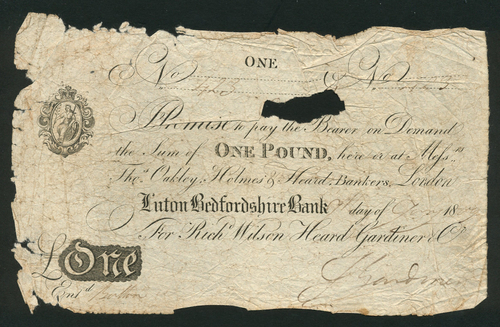 ONE
No No
I Promise to pay the Bearer on Demand
the Sum of ONE POUND, here or at Mess.rs
Tho.s Oakley, Holmes & Heard, Bankers, London
Luton Bedfordshire Bank day of 18
For Rich.d Wilson Heard Gardiner & C.o
£One
Ent.d
Gardiner